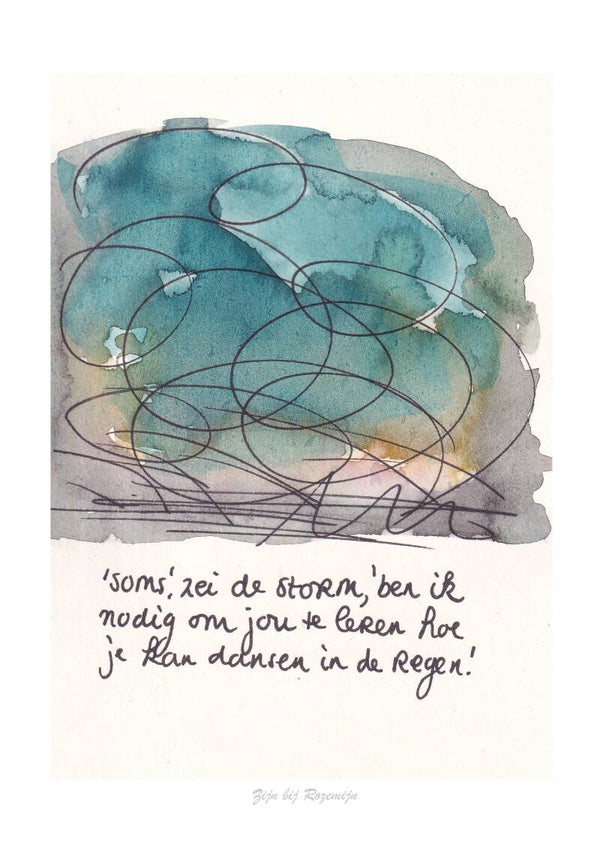 'soms', zei de storm, 'ben ik
nodig om jou te leren hoe
je kan dansen in de regen.'
Zijn bij Rozemijn